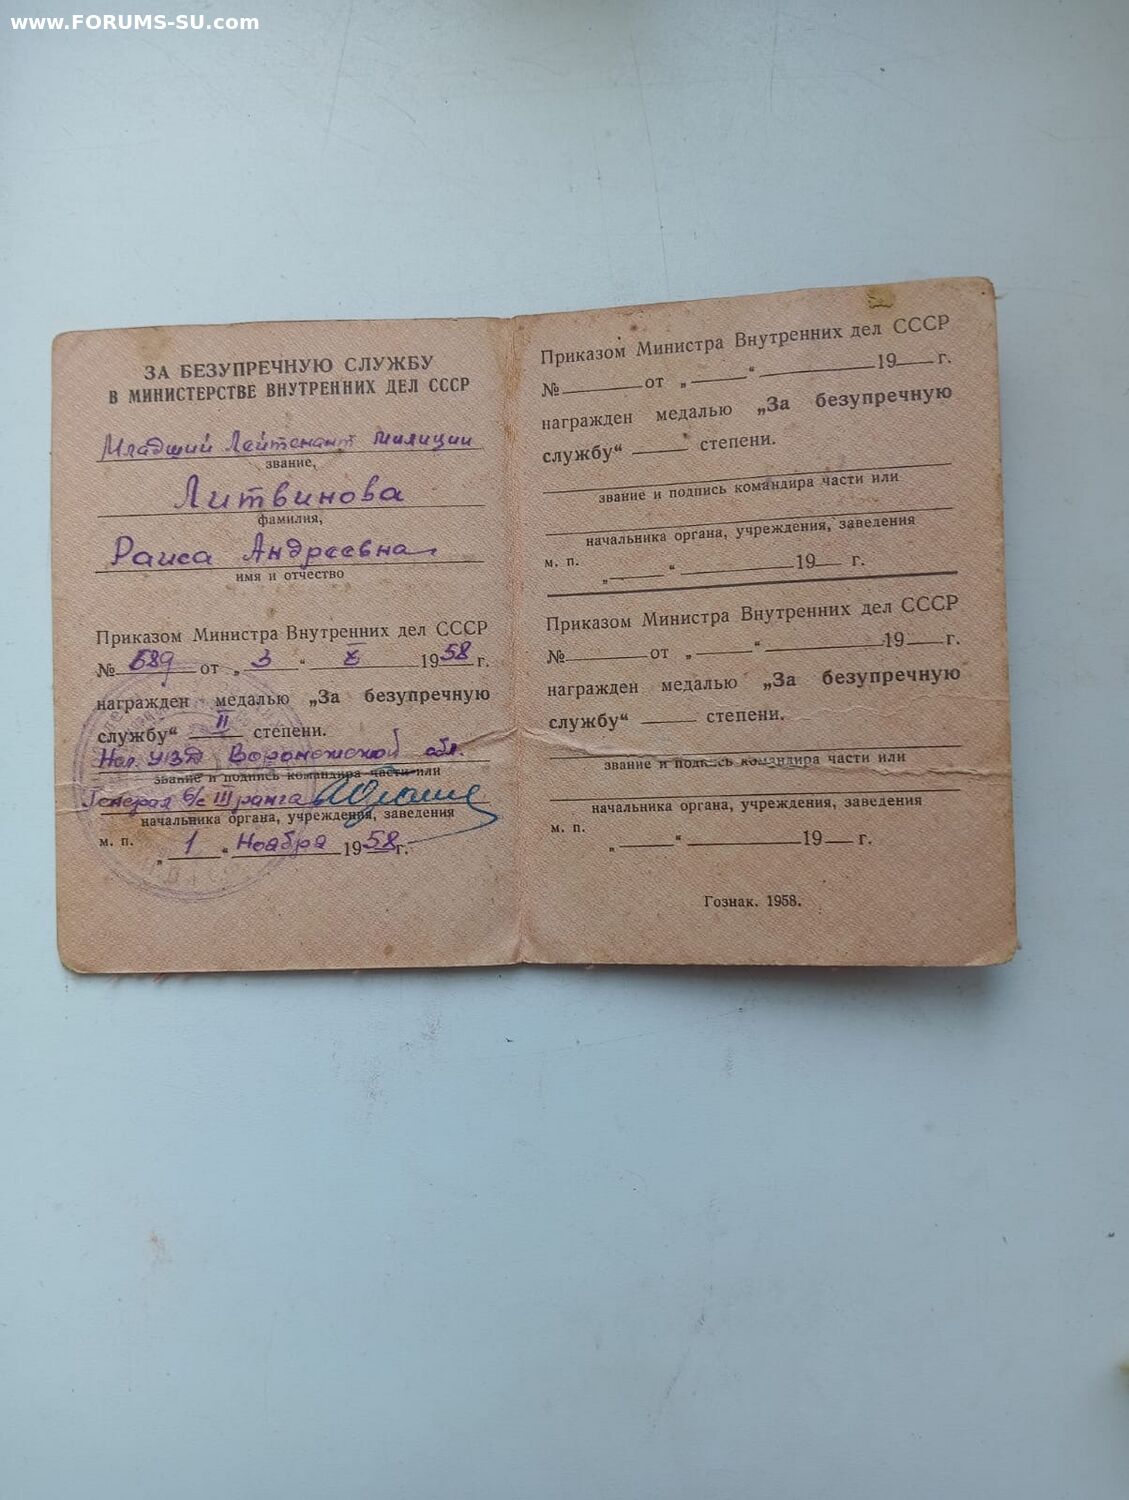 www.FORUMS-SU.com
ЗА БЕЗУПРЕЧНУЮ СЛУЖБУ
В МИНИСТЕРСТВЕ ВНУТРЕННИХ ДЕЛ СССР
Младший Лейтенант милиции
звание,
Литвинова
фамилия,
Раиса Андреевна
имя и отчество
Приказом Министра Внутренних дел СССР
№ 689 от „ 3 “ X 1958 г.
награжден медалью „За безупречную
службу“ II степени.
Нач. УВД Воронежской обл.
звание и подпись командира части или
Генерал в/с III ранга
начальника органа, учреждения, заведения
м. п.
„ 1 “ Ноября 1958 г.
Приказом Министра Внутренних дел СССР
№ от „ “ 19 г.
награжден медалью „За безупречную
службу“ степени.
звание и подпись командира части или
начальника органа, учреждения, заведения
м. п.
„ “ 19 г.
Приказом Министра Внутренних дел СССР
№ от „ “ 19 г.
награжден медалью „За безупречную
службу“ степени.
звание и подпись командира части или
начальника органа, учреждения, заведения
м. п.
„ “ 19 г.
Гознак. 1958.